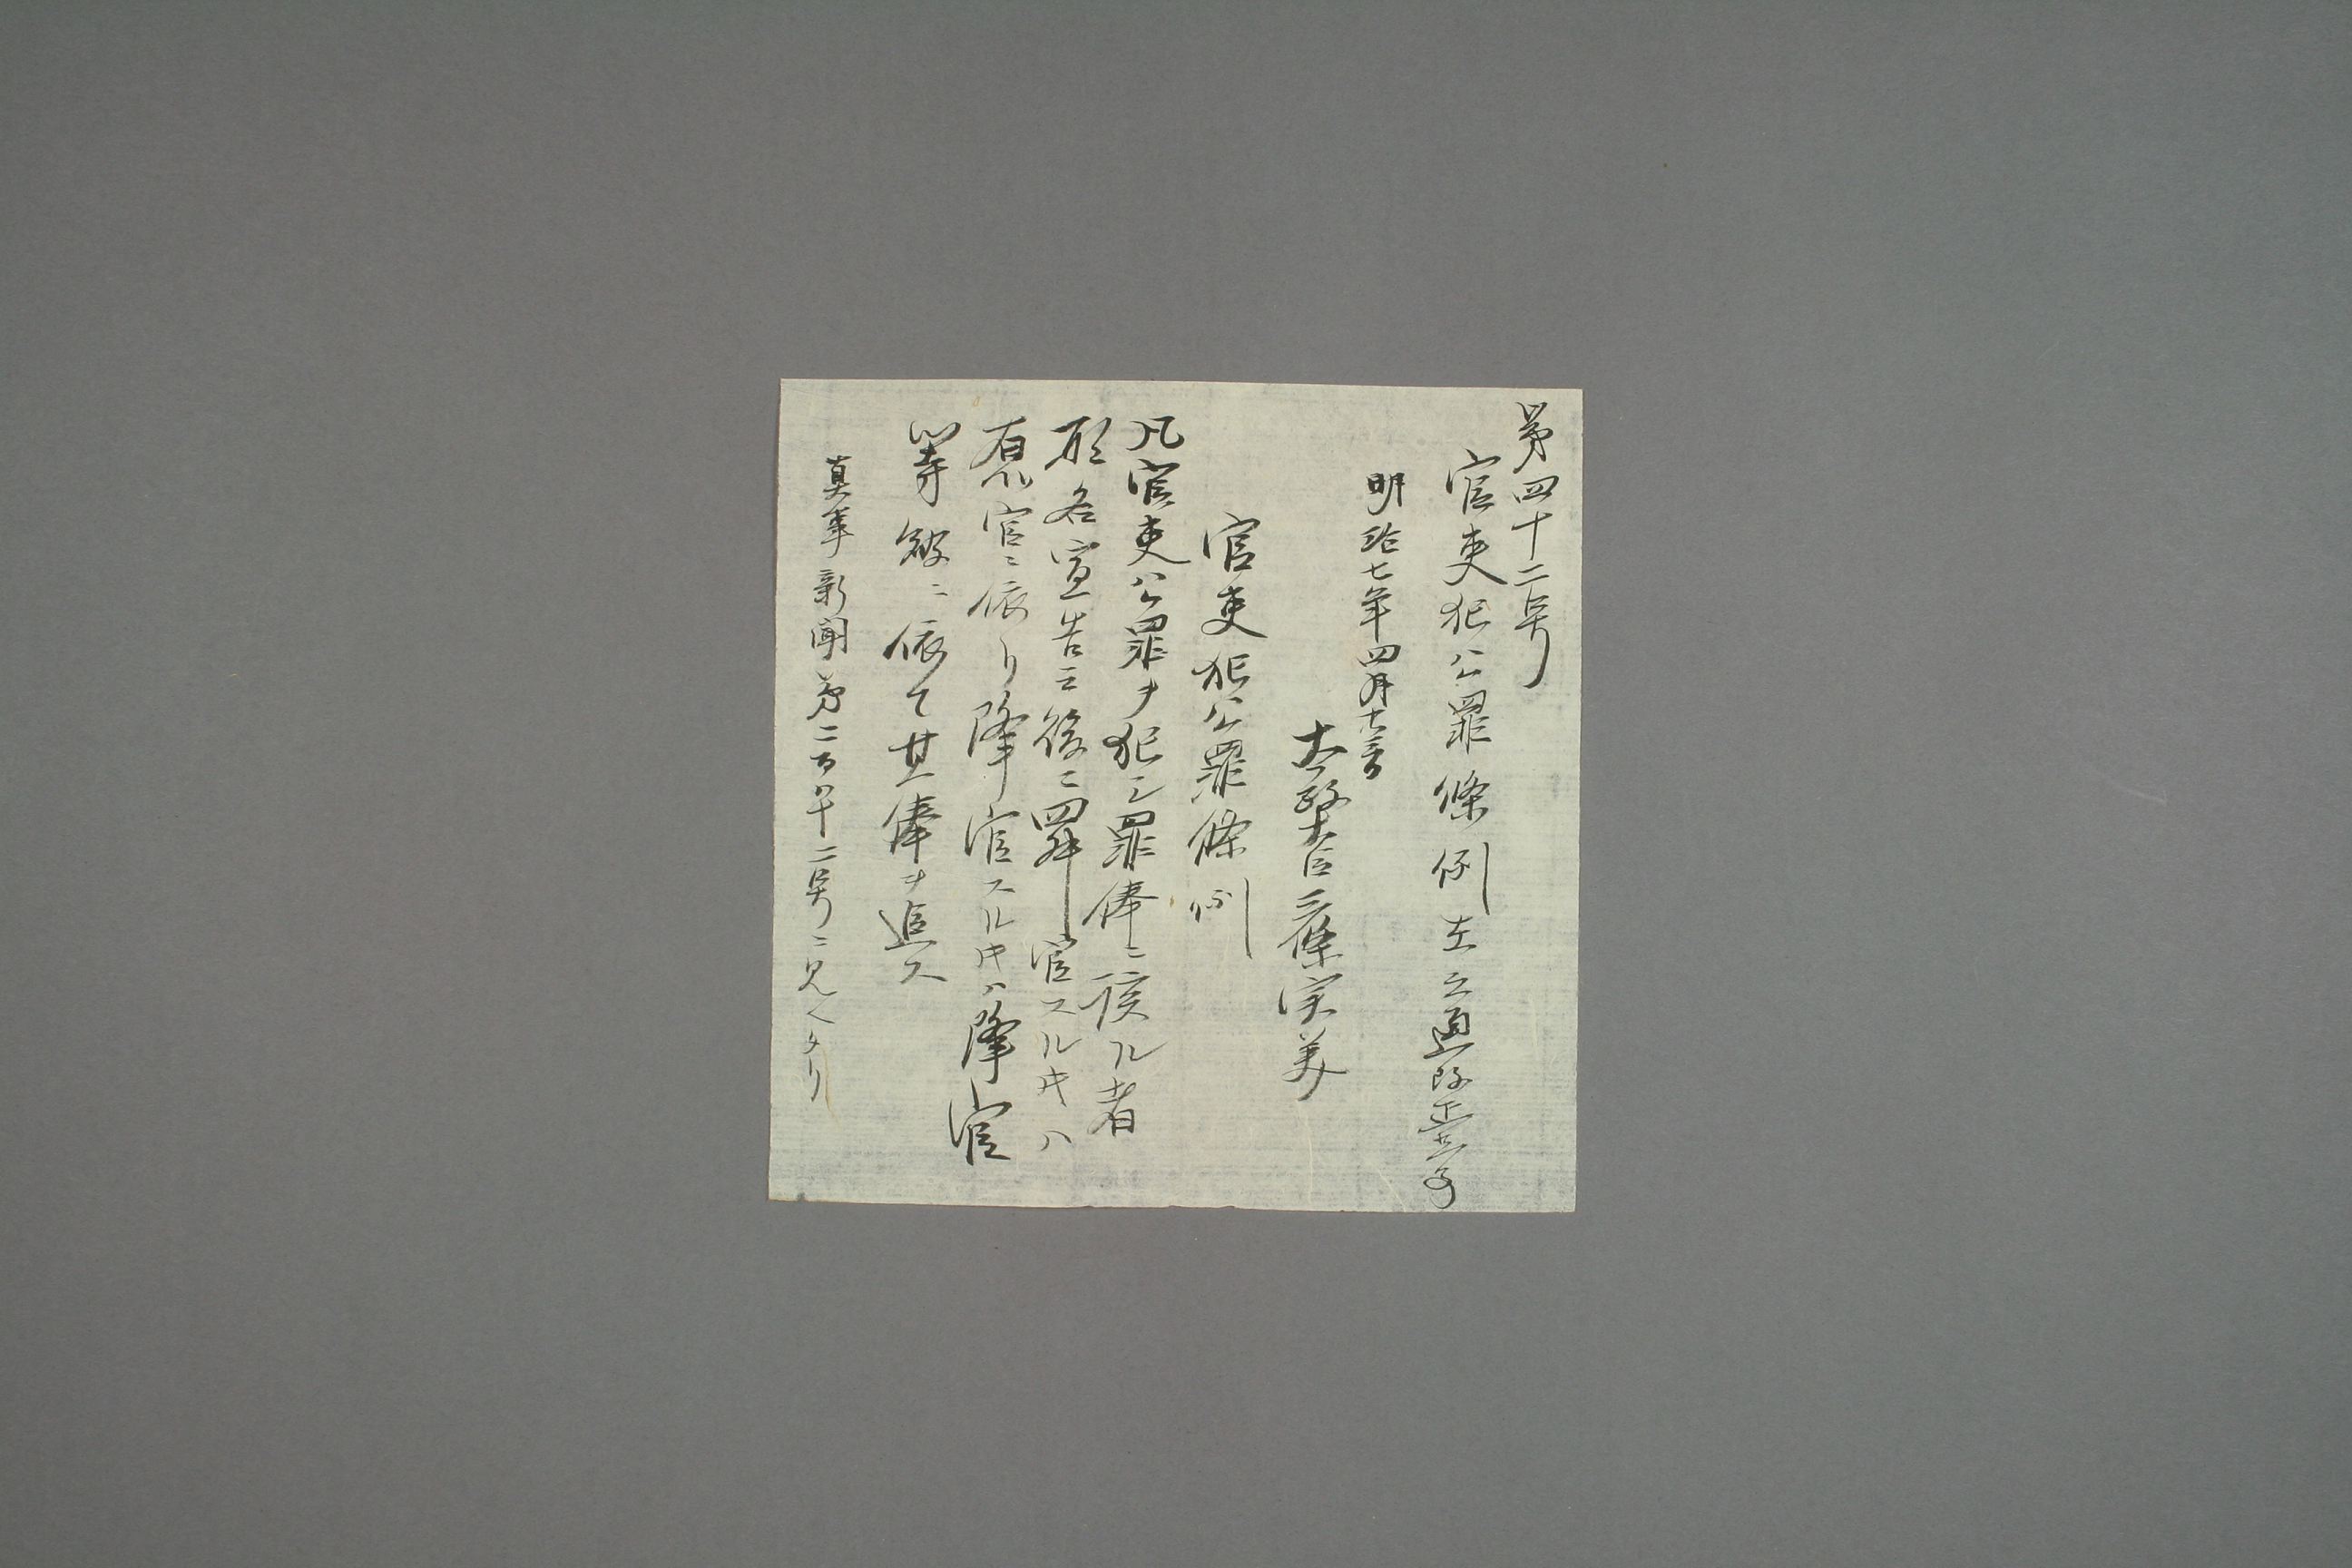 第四十二号
官吏犯公罪條例左之通改正候事
明治七年四月十六日
太政大臣三條実美
官吏犯公罪條例
凡官吏公罪ヲ犯シ罪俸ニ該ル者
宣告ノ後ニ罪官スルキハ
官ニ依リ降官スルキハ降官
等級ニ依テ其俸ヲ追ス
真事新聞第二百八十二号ニ見ヘタリ